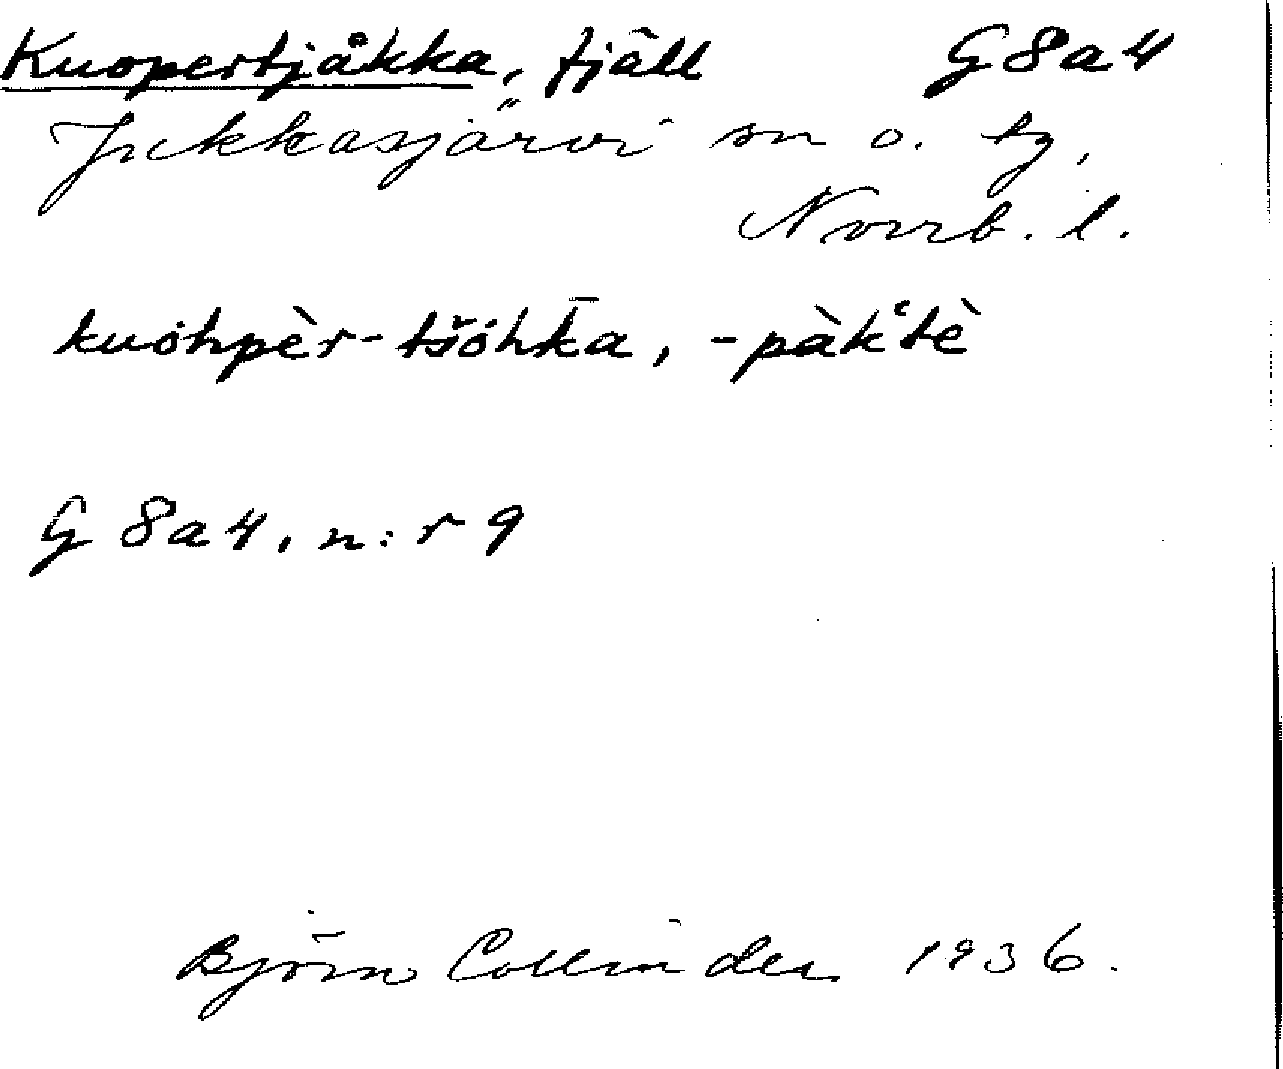 Kuopertjåkka, fjäll G8a4
Jukkasjärvi sn o. tg,
Norrb. l.
kuȯhpèr-tšȯhk̄a, -pàkʿtè
G 8a4, n:r 9
Björn Collinder 1936.